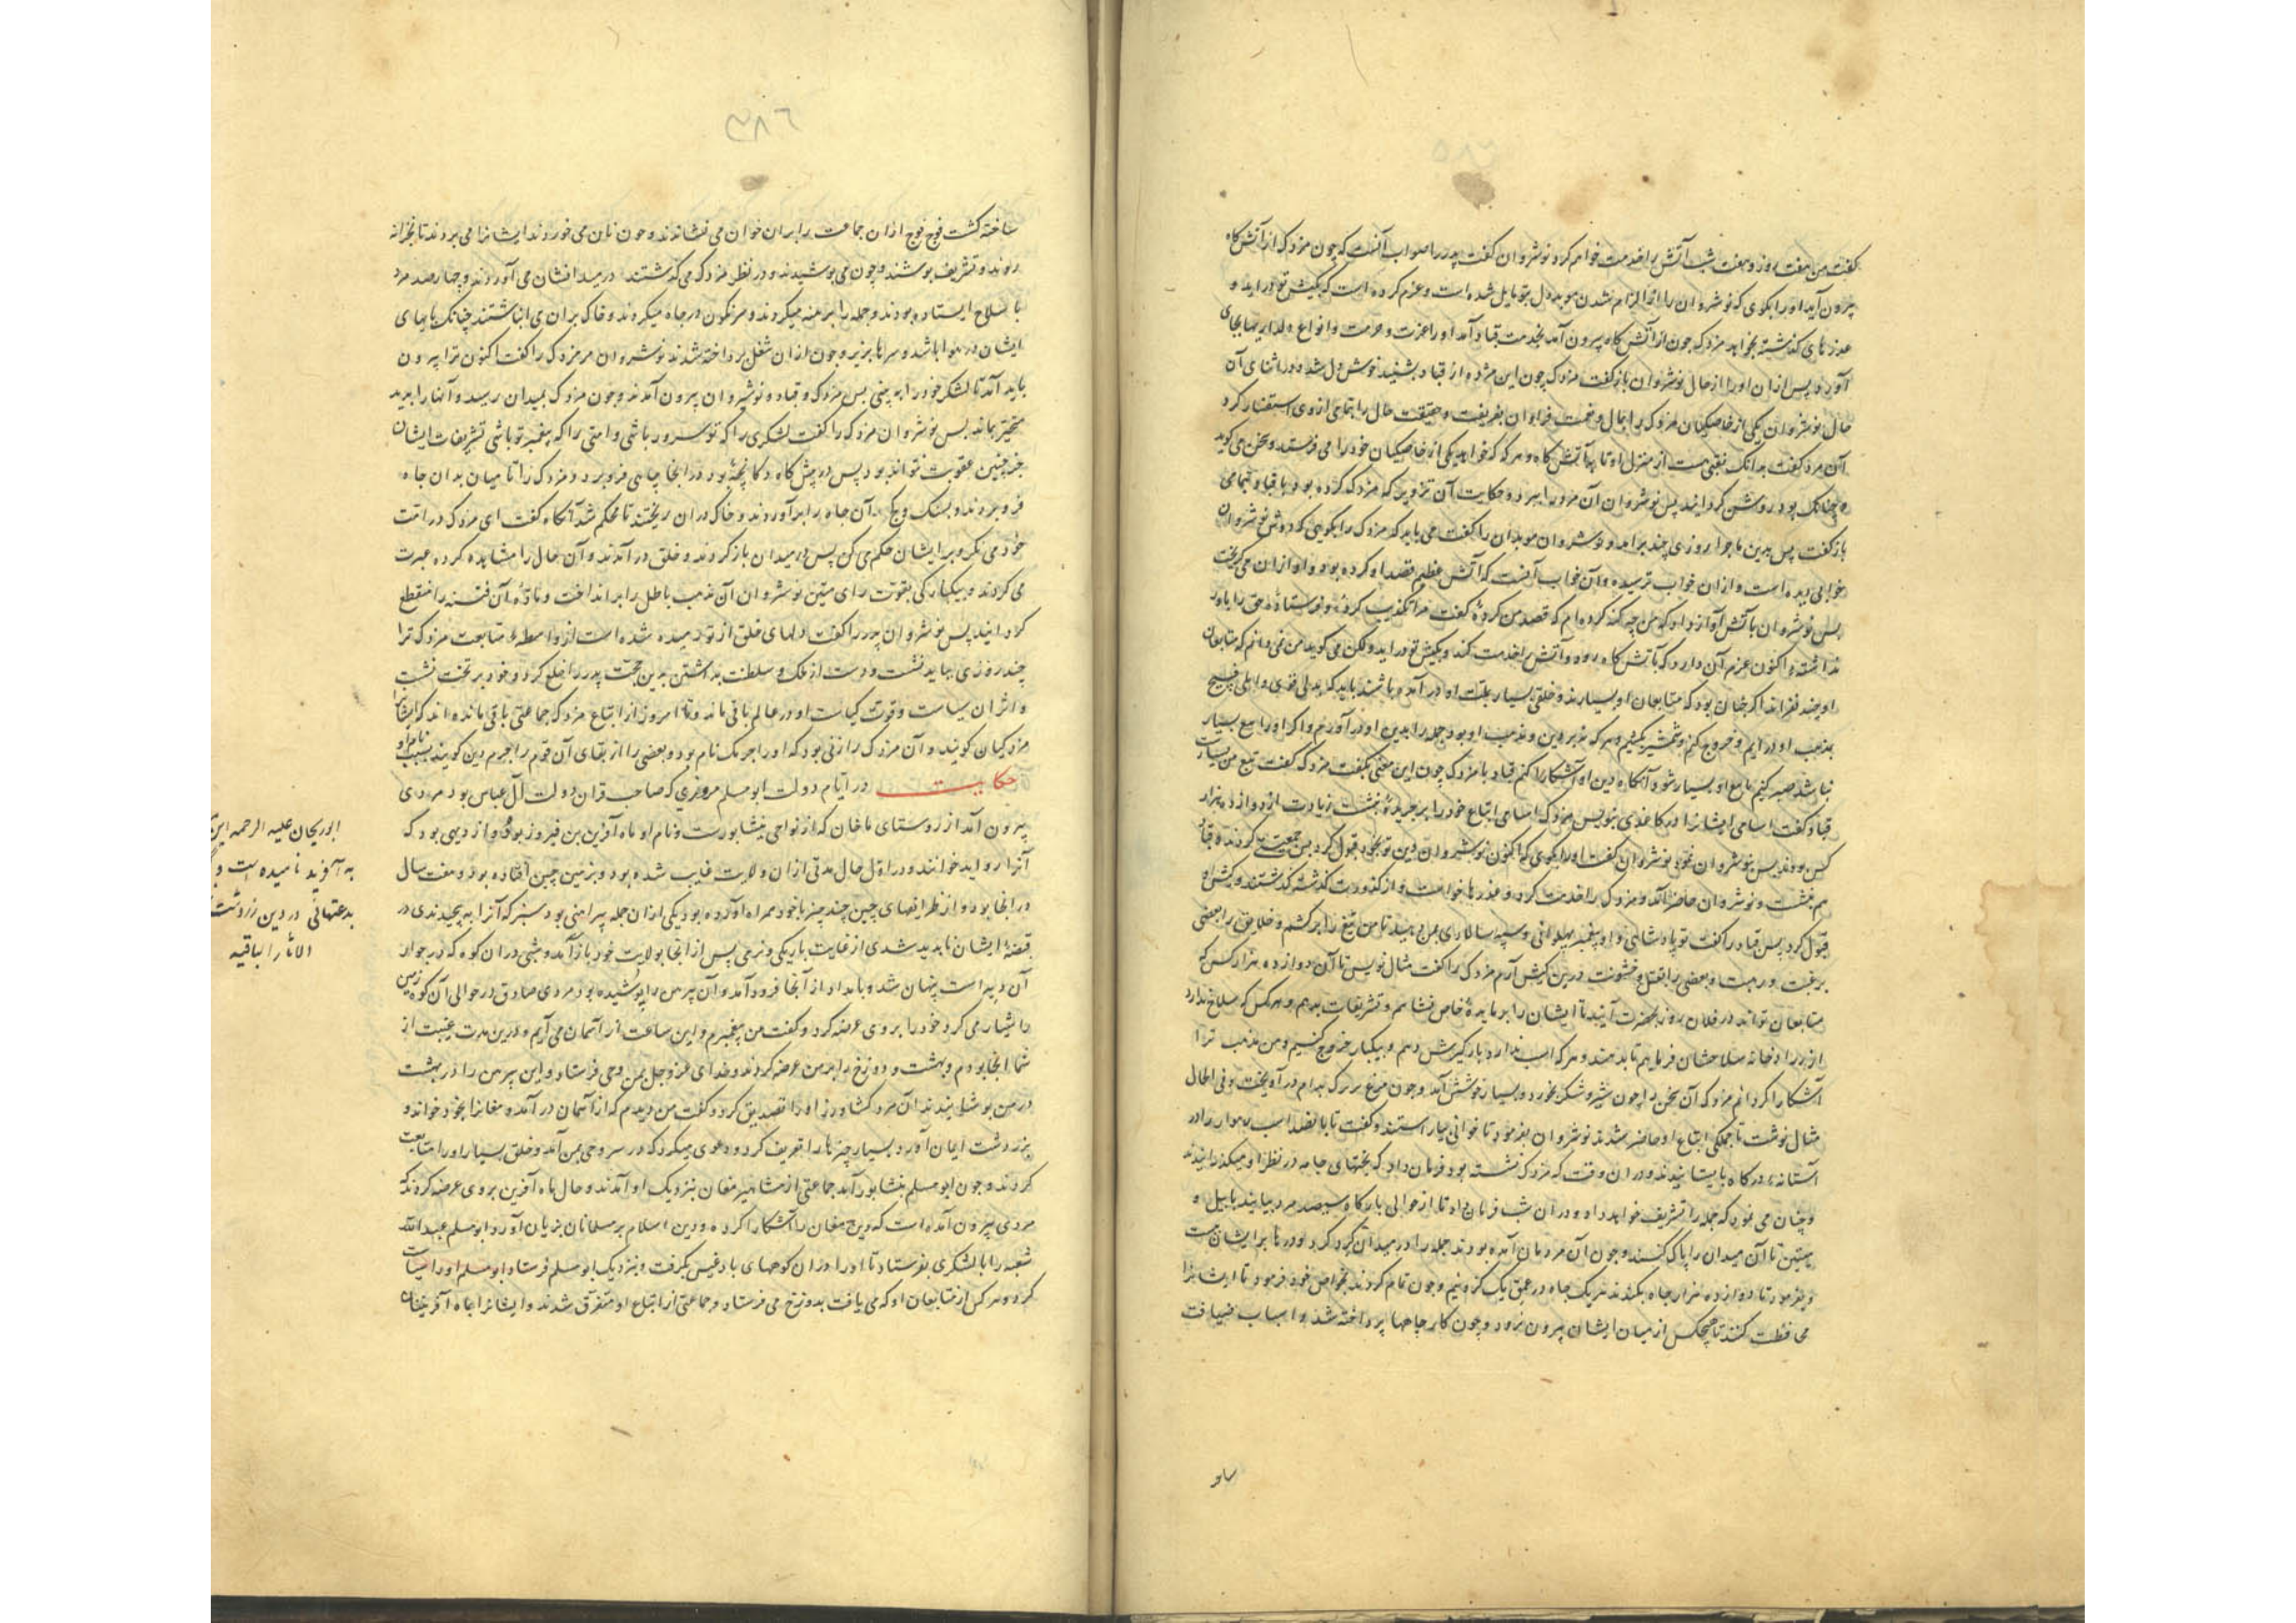 گفت من هفت روز و هفت شب آتش را خدمت خواهم کرد نوشروان گفت پدر را صواب آنست که چون مزدک از آتش گاه
بیرون آید او را بگوی که نوشروان را از الزام شدن موبد دل بتو مایل شده است و عزم کرده است که بکیش تو در آید و
عذرهای گذشته بخواهد مزدک چون از آتش گاه بیرون آمد بخدمت قباد آمد او را عزت و حرمت و انواع دلداریها بجای
آورد و پس از ان او را از حال نوشروان باز گفت مزدک چون این مژده از قباد بشنید خوش دل شد و در اثنای آن
حال نوشروان یکی از خاصگیان مزدک را بمال و نعمت فراوان بفریفت و حقیقت حال را بتمامی از وی استفسار کرد
آن مرد گفت بدانک نقبی هست از منزل او تا به آتش گاه و هر گه که خواهد یکی از خاصگیان خود را می فرستد و سخن می گوید
چنانک بود روشن گردانید پس نوشروان آن مرد را ببرد و حکایت آن تزویر که مزدک کرده بود با قباد بتمامی
باز گفت پس بدین ماجرا روزی چند برآمد و نوشروان موبدان را گفت می باید که مزدک را بگویی که دوش نوشروان
خوابی دیده است و از ان خواب ترسیده و آن خواب آنست که آتش عظیم قصد او کرده بود و او از ان می گریخت
پس نوشروان با آتش آواز داد که من چه گنه کرده ام که قصد من کردۀ گفت مرا تکذیب کردۀ و فرستادۀ حق را باور
نداشتۀ اکنون عزم آن دارد که بآتش گاه رود و آتش را خدمت کند و بکیش تو در آید ولکن می گوید من نمی دانم که متابعان
او چند نفراند اگر چنان بود که متابعان او بسیارند و خلقی بسیار بملت او در آمده باشند باید که بدلی قوی و املی فسیح
بمذهب او در ایم و خروج کنم و شمشیر بکشیم و هر که نه بر دین و مذهب او بود جمله را بدین او در آورم و اگر او را تبع بسیار
نباشد صبر کنیم تا تبع او بسیار شود آنگاه دین او آشکارا کنم قباد با مزدک چون این معنی بگفت مزدک گفت تبع من بسیارست
قباد گفت اسامی ایشان را در کاغذی بنویس مزدک اسامی اتباع خود را بر جریدۀ بنشت زیادت از دوازده هزار
کس بودند پس بنوشروان نمود نوشروان گفت او را بگوی که اکنون نوشروان دین تو بخود قبول کرد پس جمعیت کردند و قباد
هم بنشست و نوشروان حاضر آمد و مزدک را خدمت کرد و عذرها خواست و از کدورت گذشته گذشتند و کیش او
قبول کرد پس قباد را گفت تو پادشاهی و او پیغمبر پهلوانی و سپه سالاری بمن دهید تا من تیغ را بر کشم و خلایق را بعضی
برغبت و رهبت و بعضی را بقتل و خشونت درین کیش آرم مزدک را گفت مثال نویس تا آن دوازده هزار کس که
متابعان تواند در فلان روز بحضرت آیند تا ایشان را بر مایدۀ خاص نشانم و تشریفات بدهم و هر کس که سلاح ندارد
از زرادخانه سلاحشان فرمایم تا بدهند و هر که اسب ندارد بارگیرش دهم و بیکبار خروج کنیم و من مذهب ترا
آشکارا گردانم مزدک آن سخن را چون شیر و شکر بخورد و بسیار خوشش آمد و چون مرغ زیرک بدام در آویخت و فی الحال
مثال نوشت تا جملگی اتباع او حاضر شدند نوشروان بفرمود تا خوانی بیاراستند و گفت تا پانصد اسب رهوار را در
آستانه درگاه بایستانیدند و در ان وقت که مزدک نشسته بود فرمان داد که تختهای جامه در نظر او میگذرانیدند
و چنان می نمود که جمله را تشریف خواهد داد و در ان شب فرمان داد تا از حوالی بارگاه سیصد مرد بیایند با بیل و
میتین تا آن میدان را پاک کنند و چون آن مردمان آمده بودند جمله را در میدان گرد کرد و درها بر ایشان ببست
و بفرمود تا دوازده هزار چاه بکندند هر یک چاه در عمق یک گز و نیم و چون تمام کردند بخواص خود فرمود تا ایشان را
محافظت کنند تا هیچکس از میان ایشان بیرون نرود و چون کار چاهها پرداخته شد و اسباب ضیافت
۳۸۶
ساخته گشت فوج فوج از ان جماعت را بر ان خوان می نشاندند و چون نان می خوردند ایشان را می بردند تا بخزانه
روند و تشریف پوشند و چون می پوشیدند و در نظر مزدک می گذشتند در میدانشان می آوردند و چهار صد مرد
با سلاح ایستاده بودند و جمله را برهنه میکردند و سرنگون در چاه میکردند و خاک بر ان می انباشتند چنانک پاهای
ایشان در هوا باشد و سرها بزیر و چون از ان شغل پرداخته شدند نوشروان مر مزدک را گفت اکنون ترا بیرون
باید آمد تا لشکر خود را ببینی پس مزدک و قباد و نوشروان بیرون آمدند و چون مزدک بمیدان رسید و آنها را بدید
متحیر بماند پس نوشروان مزدک را گفت لشکری را که تو سرور باشی و امتی را که پیغمبر تو باشی تشریفات ایشان
جز چنین عقوبت نتواند بود پس در پیش گاه دکانچۀ بود در آنجا چاهی فرو برد و مزدک را تا میان بدان چاه
فرو بردند و بسنگ و گچ آن چاه را بر آوردند و خاک در ان ریختند تا محکم شد آنگاه گفت ای مزدک در امت
خود می نگر و بر ایشان حکم می کن پس در میدان باز کردند و خلق در آمدند و آن حال را مشاهده کرده عبرت
می گردند و بیکبارگی بقوت رای متین نوشروان آن مذهب باطل را بر انداخت و مادۀ آن فتنه را منقطع
گردانید پس نوشروان پدر را گفت دلهای خلق از تو رمیده شده است از واسطۀ متابعت مزدک ترا
چند روزی بباید نشست و دست از ملک و سلطنت بداشتن بدین حجت پدر را خلع کرد و خود بر تخت نشست
و اثر ان سیاست و قوت کیاست او در عالم باقی ماند و تا امروز از اتباع مزدک جماعتی باقی مانده اند که ایشان را
مزدکیان گویند و آن مزدک را زنی بود که او را خرمک نام بود و بعضی را از بقای آن قوم را خرم دین گویند بسبب نام او
حکایت در ایام دولت ابو مسلم مروزی که صاحب قران دولت آل عباس بود مردی
بیرون آمد از روستای ماخان که از نواحی نیشابورست و نام او ماه آفرین بن فیروز بود و از دیهی بود که
آنرا رواید خوانند و در اول حال مدتی از ان ولایت غایب شده بود و بزمین چین افتاده بود و هفت سال
در آنجا بود و از ظرایفهای چین چند چیز با خود همراه آورده بود یکی از ان جمله پیراهنی بود سبز که آنرا بپیچیدندی در
قبضۀ ایشان ناپدید شدی از غایت باریکی و نرمی پس از آنجا بولایت خود باز آمد و شبی در ان کوه که در جوار
آن دیه است پنهان شد و بامداد از آنجا فرود آمد و آن پیرهن را پوشیده بود مردی صادق در حوالی آن کوه زمین
را شیار می کرد خود را بروی عرضه کرد و گفت من پیغمبرم و این ساعت از آسمان می آیم و درین مدت غیبت از
شما آنجا بودم و بهشت و دوزخ را بر من عرضه کردند و خدای عز و جل بمن وحی فرستاد و این پیرهن را در بهشت
در من پوشانیدند آن مرد کشاورز او را تصدیق کرد و گفت من دیدم که از آسمان در آمد و مغانرا بخود خواند و
بزردشت ایمان آورد و بسیار چیزها را تعریف کرد و دعوی میکرد که در سر وحی بمن آمد و خلق بسیار او را متابعت
کردند و چون ابو مسلم بنشابور آمد جماعتی از مشاهیر مغان بنزدیک او آمدند و حال ماه آفرین بروی عرضه کردند که
مردی بیرون آمده است که دین مغان را آشکارا کرده و دین اسلام بر مسلمانان بزیان آورد ابو مسلم عبد الله
شعبه را با لشکری بفرستاد تا او را در ان کوههای بادغیس بگرفت و بنزدیک ابو مسلم فرستاد ابو مسلم او را سیاست
کرد و هر کس از متابعان او که می یافت بدوزخ می فرستاد و جماعتی از اتباع او متفرق شدند و ایشان را ماه آفرینیان
ابوریحان علیه الرحمه این
به آفرید نامیده است و
بدعتهائی در دین زردشت
الاثار الباقیه